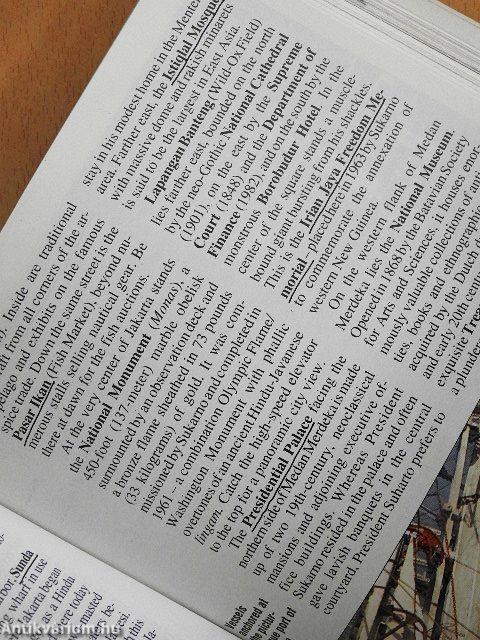 . Inside are traditional
ft from all corners of the ar-
pelago and exhibits on the famous
spice trade. Down the same street is the
Pasar Ikan (Fish Market), beyond nu-
merous stalls selling nautical gear. Be
there at dawn for the fish auctions.
At the very center of Jakarta stands
the National Monument (Monas), a
450-foot (137-meter) marble obelisk
surmounted by an observation deck and
a bronze flame sheathed in 73 pounds
(33 kilograms) of gold. It was com-
missioned by Sukarno and completed in
1961 – a combination Olympic Flame/
Washington Monument with phallic
overtones of an ancient Hindu-Javanese
lingam. Catch the high-speed elevator
to the top for a panoramic city view.
The Presidential Palace facing the
northern side of Medan Merdeka is made
up of two 19th-century, neoclassical
mansions and adjoining executive of-
fice buildings. Whereas President
Sukarno resided in the palace and often
gave lavish banquets in the central
courtyard, President Suharto prefers to
stay in his modest home in the Menteng
area. Farther east, the Istiqlal Mosque
with massive dome and rakish minarets
is said to be the largest in East Asia.
Lapangan Banteng (Wild-Ox Field)
lies farther east, bounded on the north
by the neo-Gothic National Cathedral
(1901), on the east by the Supreme
Court (1848) and the Department of
Finance (1982), and on the south by the
monstrous Borobudur Hotel. In the
center of the square stands a muscle-
bound giant bursting from his shackles.
This is the Irian Jaya Freedom Me-
morial, placed here in 1963 by Sukarno
to commemorate the annexation of
western New Guinea.
On the western flank of Medan
Merdeka lies the National Museum.
Opened in 1868 by the Batavian Society
for Arts and Sciences, it houses enor-
mously valuable collections of anti-
ties, books and ethnographic
acquired by the Dutch d
and early 20th centu
exquisite Trea
a plunde
Sunda
wharf in use
akarta began
a Hindu
ere today
assisted
be.
this
la-
essels
anchored at
the pictur-
que port of
Antikvarium.hu